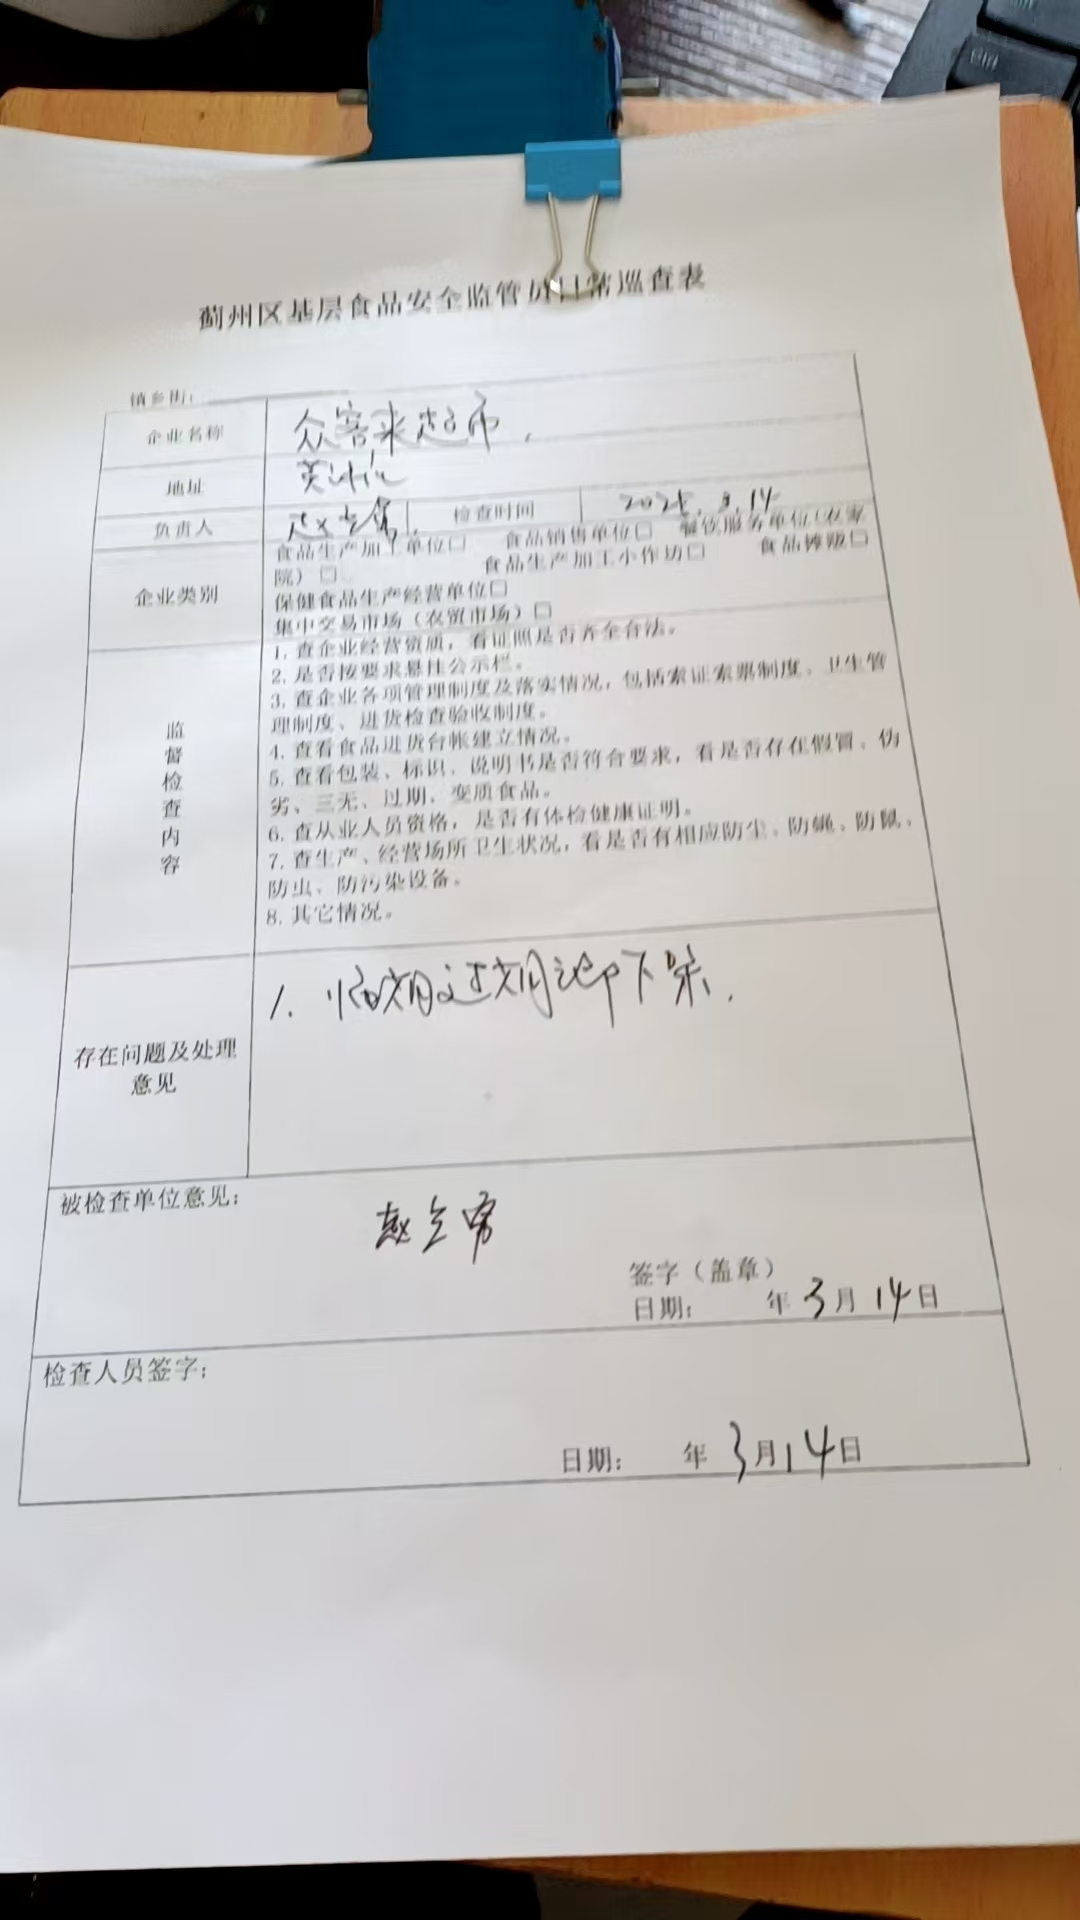 蓟州区基层食品安全监管员日常巡查表
镇乡街:
企业名称 众客来超市
地址
负责人 检查时间 2025.3.14
企业类别
食品生产加工单位□ 食品销售单位□ 餐饮服务单位(农家
院)□ 食品生产加工小作坊□ 食品摊贩□
保健食品生产经营单位□
集中交易市场(农贸市场)□
监督检查内容
1. 查企业经营资质,看证照是否齐全合法。
2. 是否按要求悬挂公示栏。
3. 查企业各项管理制度及落实情况,包括索证索票制度、卫生管
理制度、进货检查验收制度。
4. 查看食品进货台帐建立情况。
5. 查看包装、标识、说明书是否符合要求,看是否存在假冒、伪
劣、三无、过期、变质食品。
6. 查从业人员资格,是否有体检健康证明。
7. 查生产、经营场所卫生状况,看是否有相应防尘、防蝇、防鼠、
防虫、防污染设备。
8. 其它情况。
存在问题及处理
意见
1. 临期过期记录下架.
被检查单位意见:
签字(盖章)
日期: 年3月14日
检查人员签字:
日期: 年3月14日